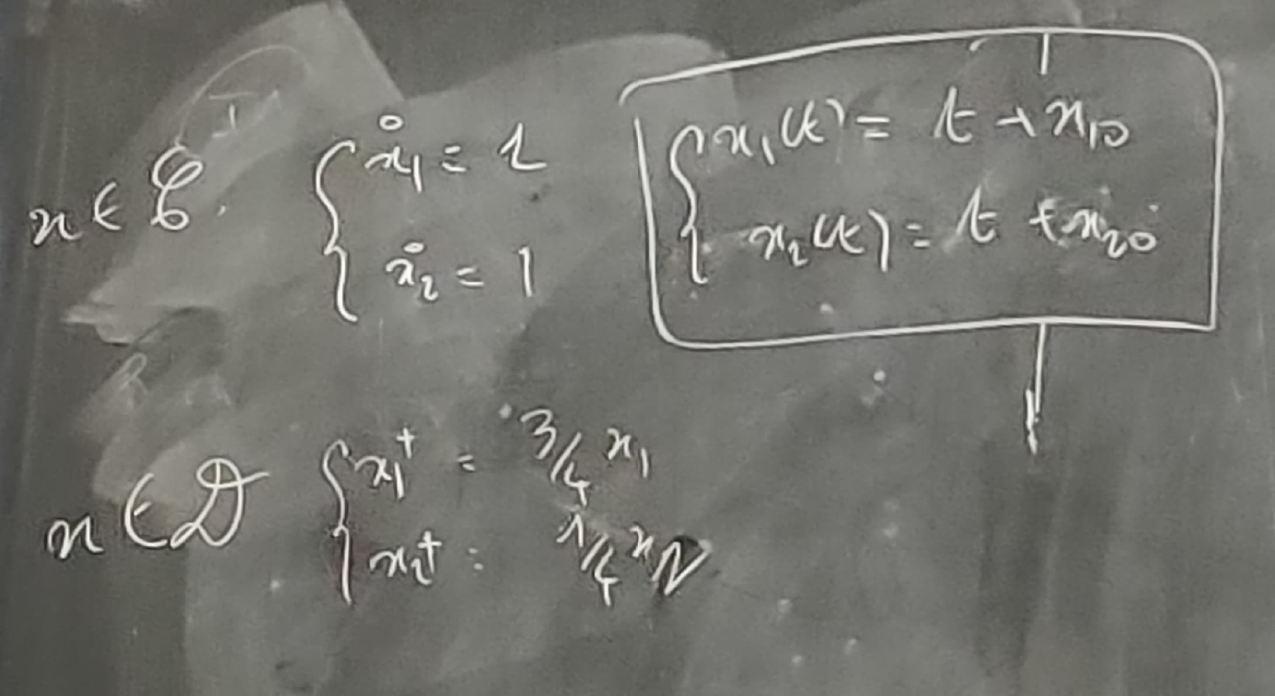 x ∈ C. { ẋ₁ = 1
ẋ₂ = 1
{ x₁(t) = t + x₁₀
x₂(t) = t + x₂₀
x ∈ D { x₁⁺ = 3/4 x₁
x₂⁺ = 1/4 x₂